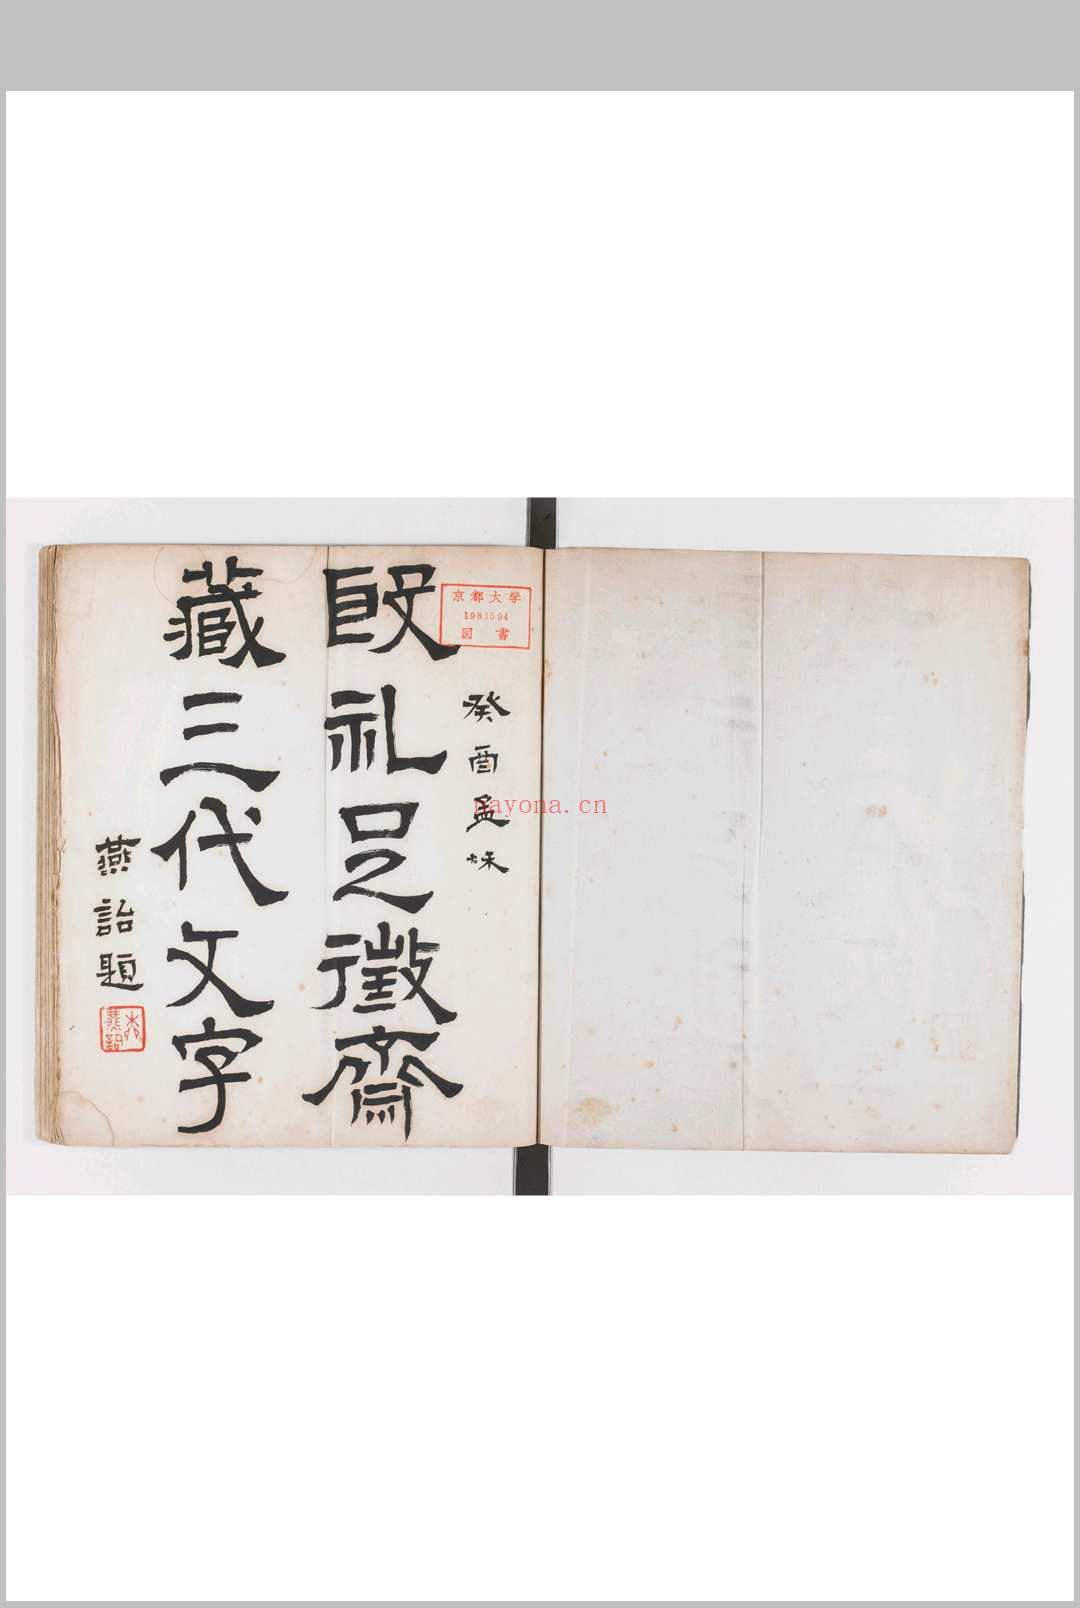 京都大学
1981594
図書
癸酉孟秌
殷礼足徵齋
藏三代文字
燕詒題
nayona.cn